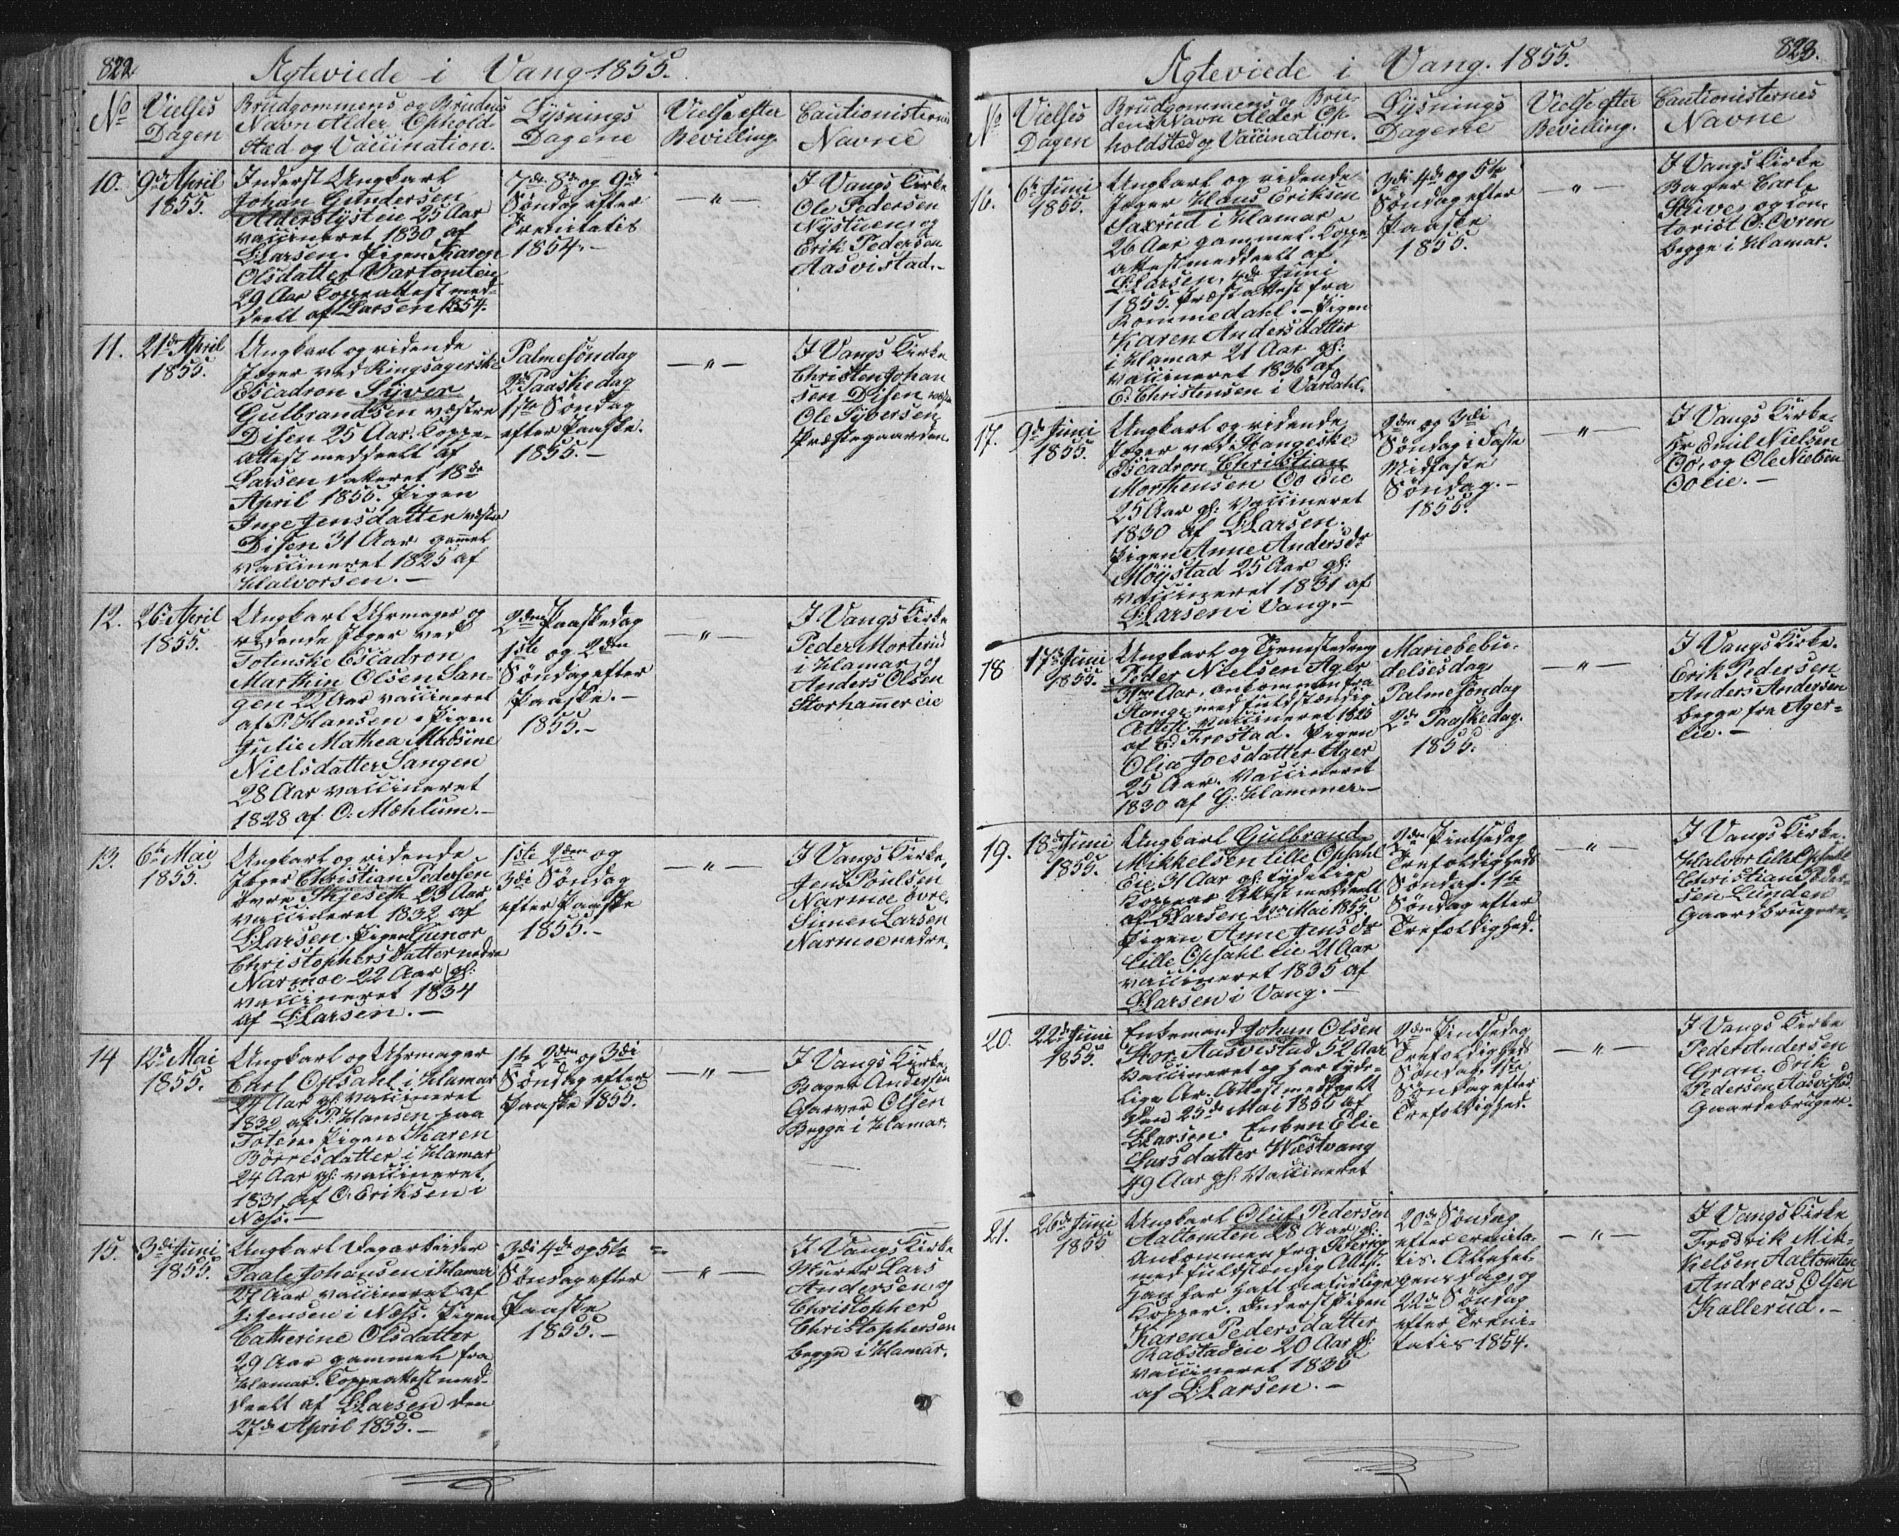 822
Ægteviede i Vang 1855.
No
Vielses Dagen
Brudgommens og Brudens
Navn Alder Ophold
Sted og Vaccination.
Lysnings
Dagene
Vielse efter
Bevilling
Cautionisternes
Navne
10.
9de April
1855.
Inderst Ungkarl
Johan Gundersen
Alderslysteie 25 Aar
vaccineret 1830 af
L. Larsen. Pigen Karen
Olsdatter Vartomten
29 Aar Koppeattest med-
deelt af L. Larsen 1854.
7de 8de og 9de
Søndag efter
Trenitatis
1854.-
— " —
I Vangs Kirke
Ole Pedersen
Nystuen og
Erik Pedersen
Aasvistad.-
11.
21de April
1855.
Ungkarl og ridende
Jæger ved Ringsagerske
Escadron Syver
Gulbrandsen vestre
Disen 25 Aar. Koppe-
Attest meddeelt af
Larsen dateret 18de
April 1855. Pigen
Inge Jensdatter vestre
Disen 31 Aar gammel
vaccineret 1825 af
Halvorsen. —
Palmesøndag
2de Paaskedag
1ste Søndag
efter Paaske.
1855.—
— " —
I Vangs Kirke
Christen Johan
sen Disen
Ole Syversen
Præstegaarden.
12.
26de April
1855.
Ungkarl Uhrmager og
ridende Jæger ved
Totenske Escadron
Marthin Olsen San-
gen 22 Aar vaccineret
af P. Hansen. Pigen
Julie Mathea Madsine
Nielsdatter Sangen
28 Aar vaccineret
1828 af O. Mæhlum.—
2den Paaskedag
1ste og 2den
Søndag efter
Paaske.—
1855.—
— " —
I Vangs Kirke
Peder Morterud
i Hamar og
Anders Olsen
Storhamer eie
13.
6te Mai
1855.
Ungkarl og ridende
Jæger Christian Pedersen
øvre Skjeseth 23 Aar
vaccineret 1832 af
L. Larsen. Pigen Gunor
Christophersdatter nedre
Narmoe 22 Aar gl:
vaccineret 1834
af L. Larsen. —
1ste 2den og
3die Søndag
efter Paaske
1855.—
— " —
I Vangs Kirke,
Jens Poulsen
Narmoe øvre,
Simen Larsen
Narmoe nedre,
14
12te Mai
1855.
Ungkarl og Uhrmager
Carl Opsahl i Hamar
27 Aar gl: vaccineret
1832 af P. Hansen paa
Toten. Pigen Karen
Børresdatter i Hamar
24 Aar gl: vaccineret
1831 af O. Eriksen i
Næss.—
1ste 2den og 3die
Søndag efter
Paaske 1855.
— " —
I Vangs Kirke,
Bager Andersen
Garver Olsen
Begge i Hamar.
15.
3die Juni
1855.
Ungkarl Dagarbeider
Paale Johansen i Hamar
27 Aar vaccineret af
J. Jensen i Næss. Pigen
Catherine Olsdatter
29 Aar gammel fra
Hamar. Koppeattest med-
deelt af L. Larsen den
27de April 1855.—
3die 4de og 5te
Søndag efter
Paaske
1855.—
— " —
I Vangs Kirke
Murer Lars
Andersen og
Christopher
Christophersen
begge i Hamar.
823.
Ægteviede i Vang. 1855.
No
Vielses
Dagen
Brudgommens og Bru-
dens Navn Alder Op-
holdsted og Vaccination.
Lysnings
Dagene
Vielse efter
Bevilling.
Cautionisternes
Navne
16.
6te Juni
1855.
Ungkarl og ridende
Jæger Hans Eriksen
Saxrud i Hamar
26 Aar gammel. Koppe-
attest meddeelt af
L. Larsen, 4de Juni
1855. Præsteattest fra
Rommedahl.— Pigen
Karen Andersdatter
i Hamar 21 Aar gl:
vaccineret 1836 af
E. Christensen i Vardahl.
3die 4de og 5te
Søndag efter
Paaske
1855.
— " —
I Vangs Kirke
Bager Carl
Stuves og Con-
torist O. Overen
begge i Hamar.
17.
9de Juni
1855.
Ungkarl og ridende
Jæger ved Stangeske
Escadron Christian
Morthensen Bo Eie
25 Aar gl: vaccineret
1830 af L. Larsen.
Pigen Anne Andersdr
Møystad 25 Aar gl:
vaccineret 1831 af
L. Larsen i Vang.—
2den og 3die
Søndag i Faste
Midfaste
Søndag.—
1855.
— " —
I Vangs Kirke.
Emil Nielsen
Bo, og Ole Nielsen
Bo eie.—
18
17de Juni
1855.
Ungkarl og Tjenestedreng
Peder Nielsen Ager
Aar, ankommen fra
Stange med fuldstændig
Attest. Vaccineret 1825
af E. Frostad. Pigen
Olia Joesdatter Ager
25 Aar. Vaccineret
1830 af G. Hammer.—
Mariebebu-
delsesdag,
Palmesøndag
2de Paaskedag.
1855.
— " —
I Vangs Kirke.
Erik Pedersen
Anders Andersen
begge fra Ager-
eie.—
19.
18de Juni
1855.
Ungkarl Gulbrand
Mikkelsen lille Opsahl
Eie 31 Aar gl: tydelige
Koppear Attest meddeelt
af L. Larsen 22de Mai 1855
Pigen Anne Jensdr
Lille Opsahl eie 21 Aar
vaccineret 1835 af
L. Larsen i Vang.—
2den Pintsedag
Trefoldigheds
Søndag. 1ste
Søndag efter
Trefoldighed.
— " —
I Vangs Kirke.
Halvor lille Opsahl
Christian Peder-
sen Lunden
Gaardbrugere,
20.
22de Juni
1855
Enkemand Johan Olsen
Stor-Aasvistad 52 Aar
Vaccineret og har tyde-
lige Ar. Attest meddeelt
den 25de Mai 1855 af
L. Larsen. Enken Elie
Larsdatter Westvang
49 Aar gl: Vaccineret
2den Pintsedag
Trefoldigheds
Søndag 1ste
Søndag efter
Trefoldighed.
— " —
I Vangs Kirke
Peder Andersen
Gran. Erik
Pedersen Aasvistad
Gaardbruger.
21.
26de Juni
1855
Ungkarl Oluf Pedersen
Aaltomten 28 Aar gl:
Ankommen fra
med fuldstændig Attest
han har haft naturlige
Kopper. Inderst Pigen
Karen Pedersdatter
Rabstadeie 20 Aar gl:
vaccineret 1835
af L. Larsen.—
20de Søndag
efter Trenita-
tis. Allehel-
gensdag, og
22de Søndag
efter Treni-
tatis 1854.
— " —
I Vangs Kirke
Fredrik Mik-
kelsen Aaltomten
Andreas Olsen
Kallerud.—